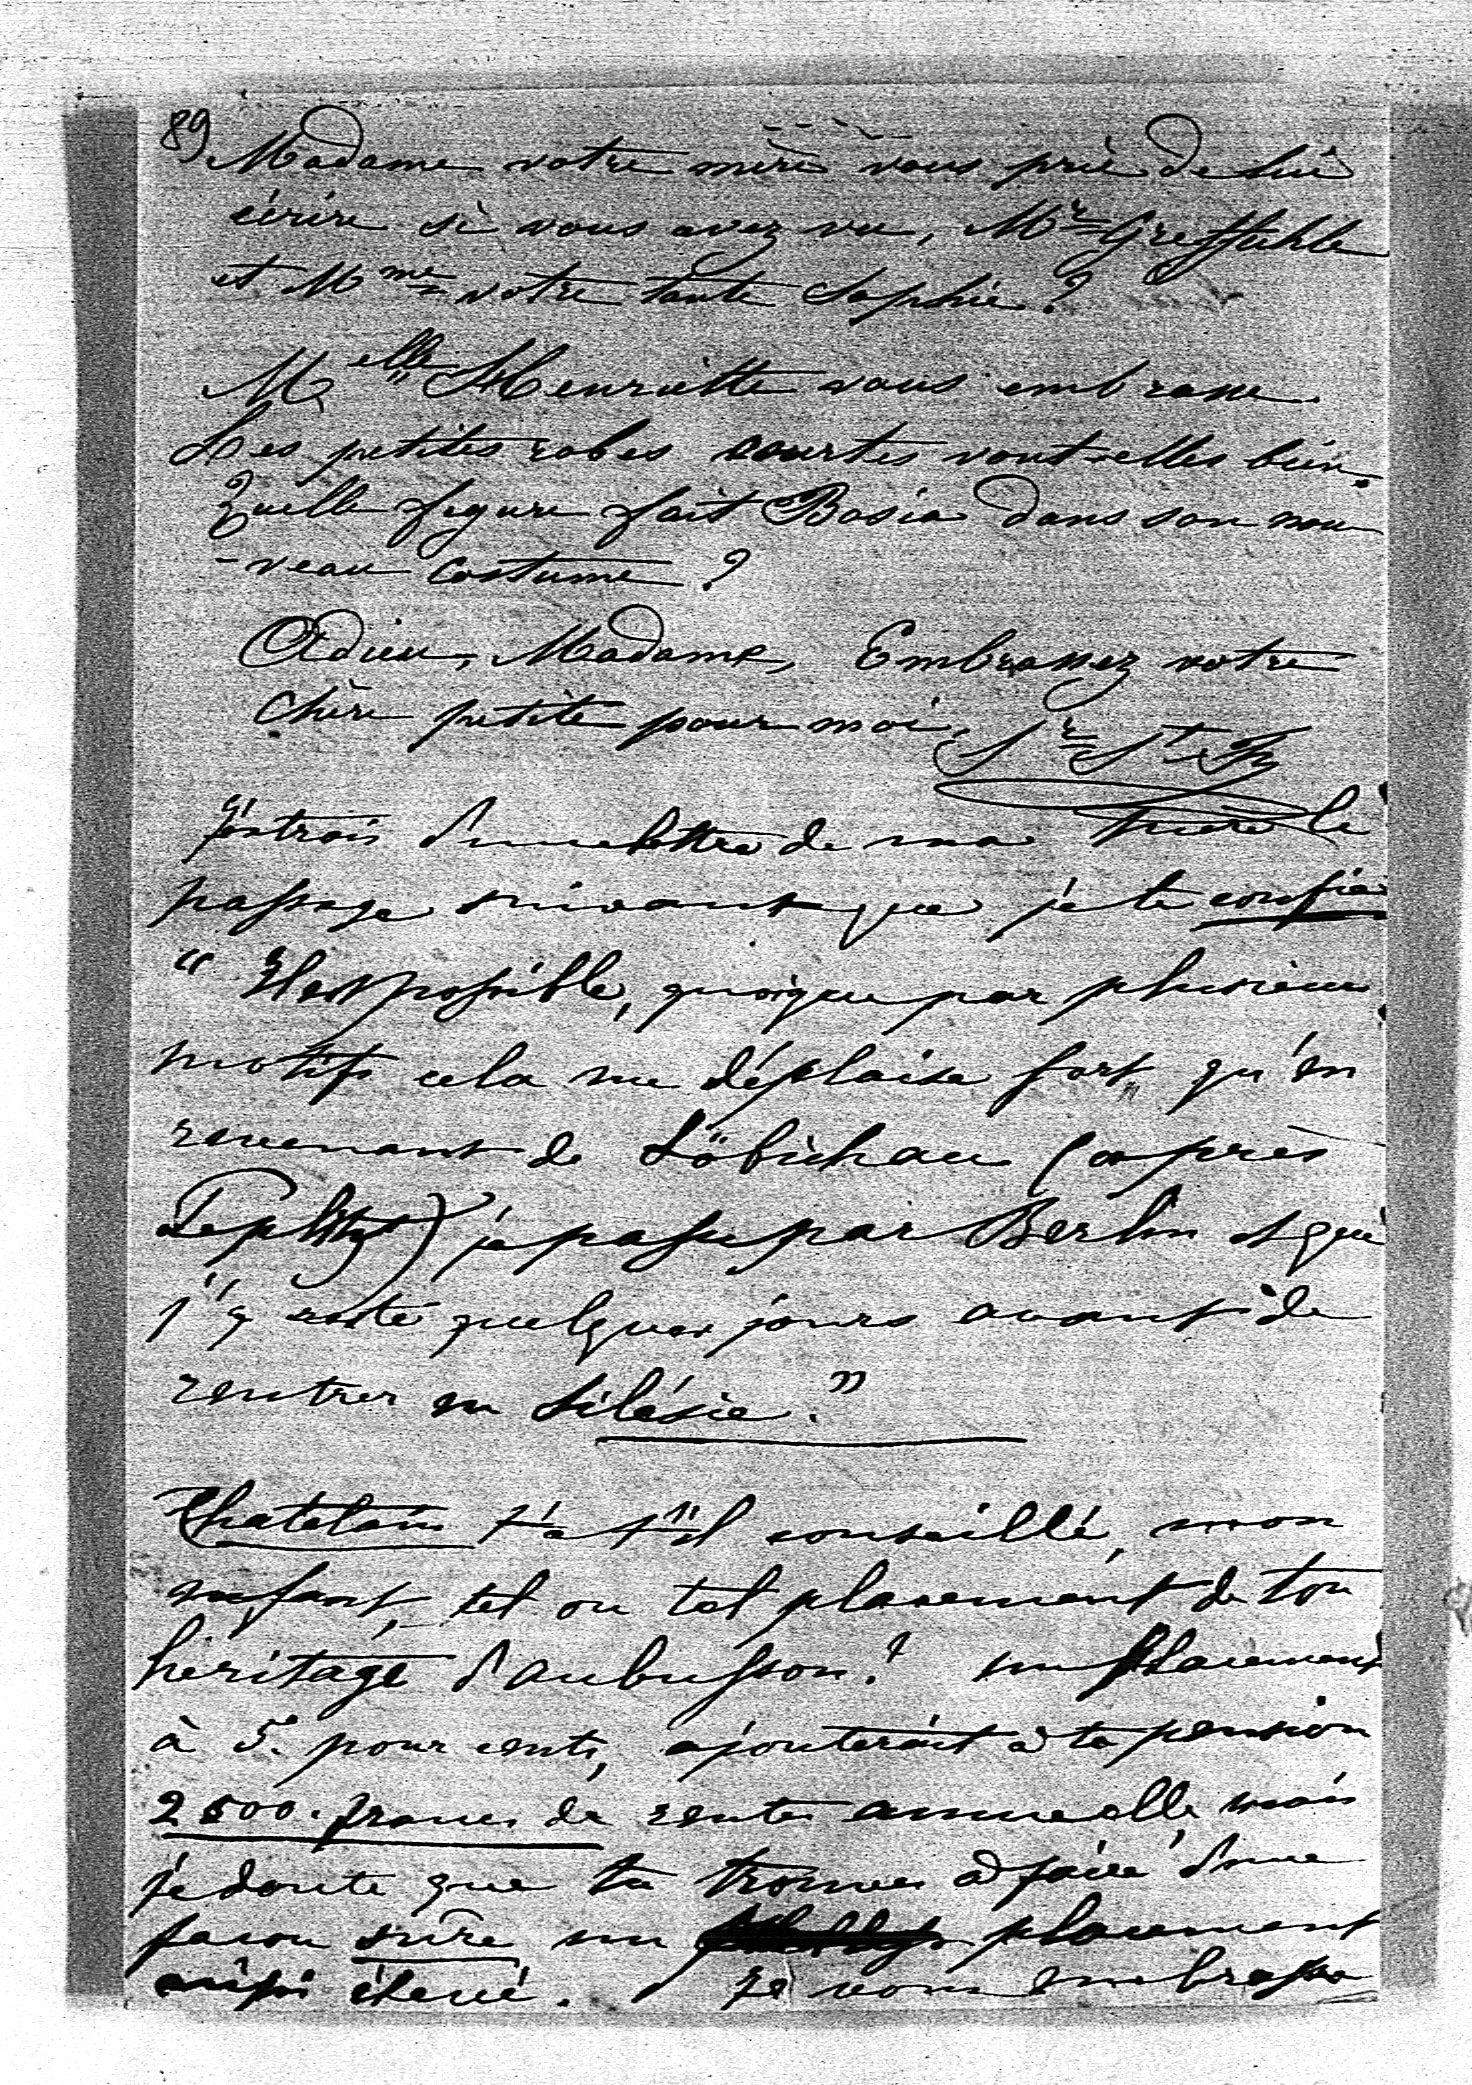 89
Madame votre mère vous prie de lui
écrire si vous avez vu, Mr Greffuhle
et Mme votre tante Sophie ?
Melle Henriette vous embrasse.
Les petites robes courtes vont-elles bien.
Quelle figure fait Bosia dans son nou
-veau costume ?
Adieu, Madame, Embrassez votre
chère petite pour moi.
Sr St
J'extrais d'une lettre de ma mère le
passage suivant que je te confie
" Il est possible, quoique par plusieurs
motifs cela me déplaise fort, qu'en
revenant de Löbichau (après
Teplitz) je passe par Berlin et que
j'y reste quelques jours avant de
rentrer en Silésie."
Chatelain t'a t'il conseillé, mon
enfant, tel ou tel placement de ton
héritage d'aubusson ? un placement
à 5. pour cent, ajouterait à ta pension
2500. francs de rente annuelle, mais
je doute que tu trouves à faire d'une
façon sûre un placement
aussi élevé. Je vous embrasse